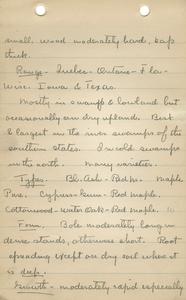 small. wood moderately hard, sap
thick.
Range - Quebec - Ontario - Fla -
Wisc. Iowa & Texas.
Mostly in swamps & lowland but
occasionally on dry upland. Best
& largest in the river swamps of the
southern states. In cold swamps
in the north. Many varieties.
Types. Bl. Ash - Red m. Maple
Pure. Cypress - Gum - Red maple.
Cottonwood - Water Oak - Red maple.
Form. Bole moderately long in
dense stands, otherwise short. Root
spreading except on dry soil where it
is deep.
Growth - moderately rapid especially